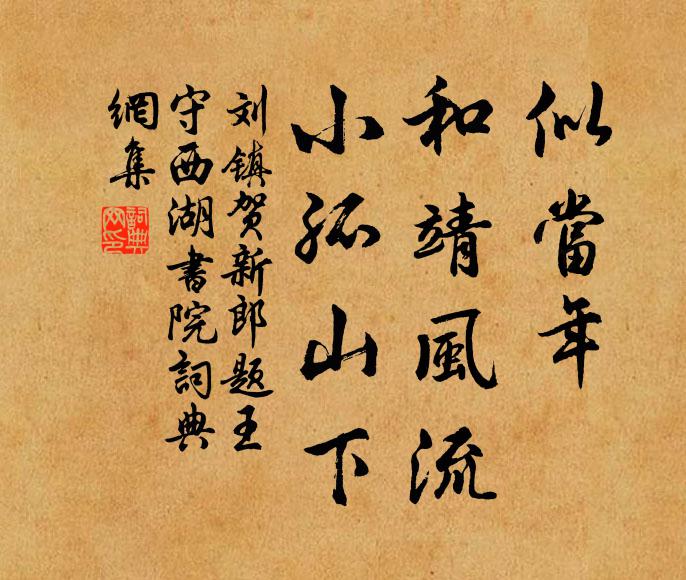 似當年
和靖風流
小孤山下
刘镇贺新郎题王
守西湖書院詞典
網集
詞典
网印